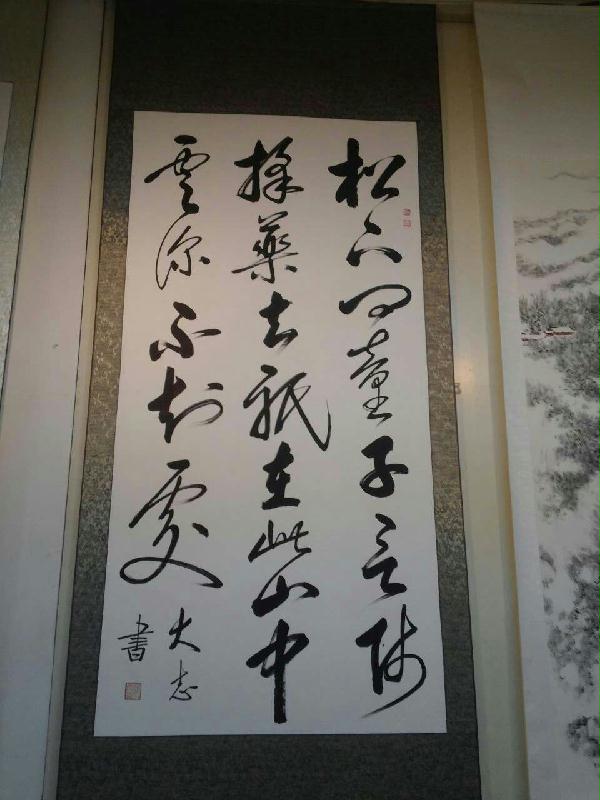 松下问童子言师
採藥去祇在此山中
雲深不知處
大志
書